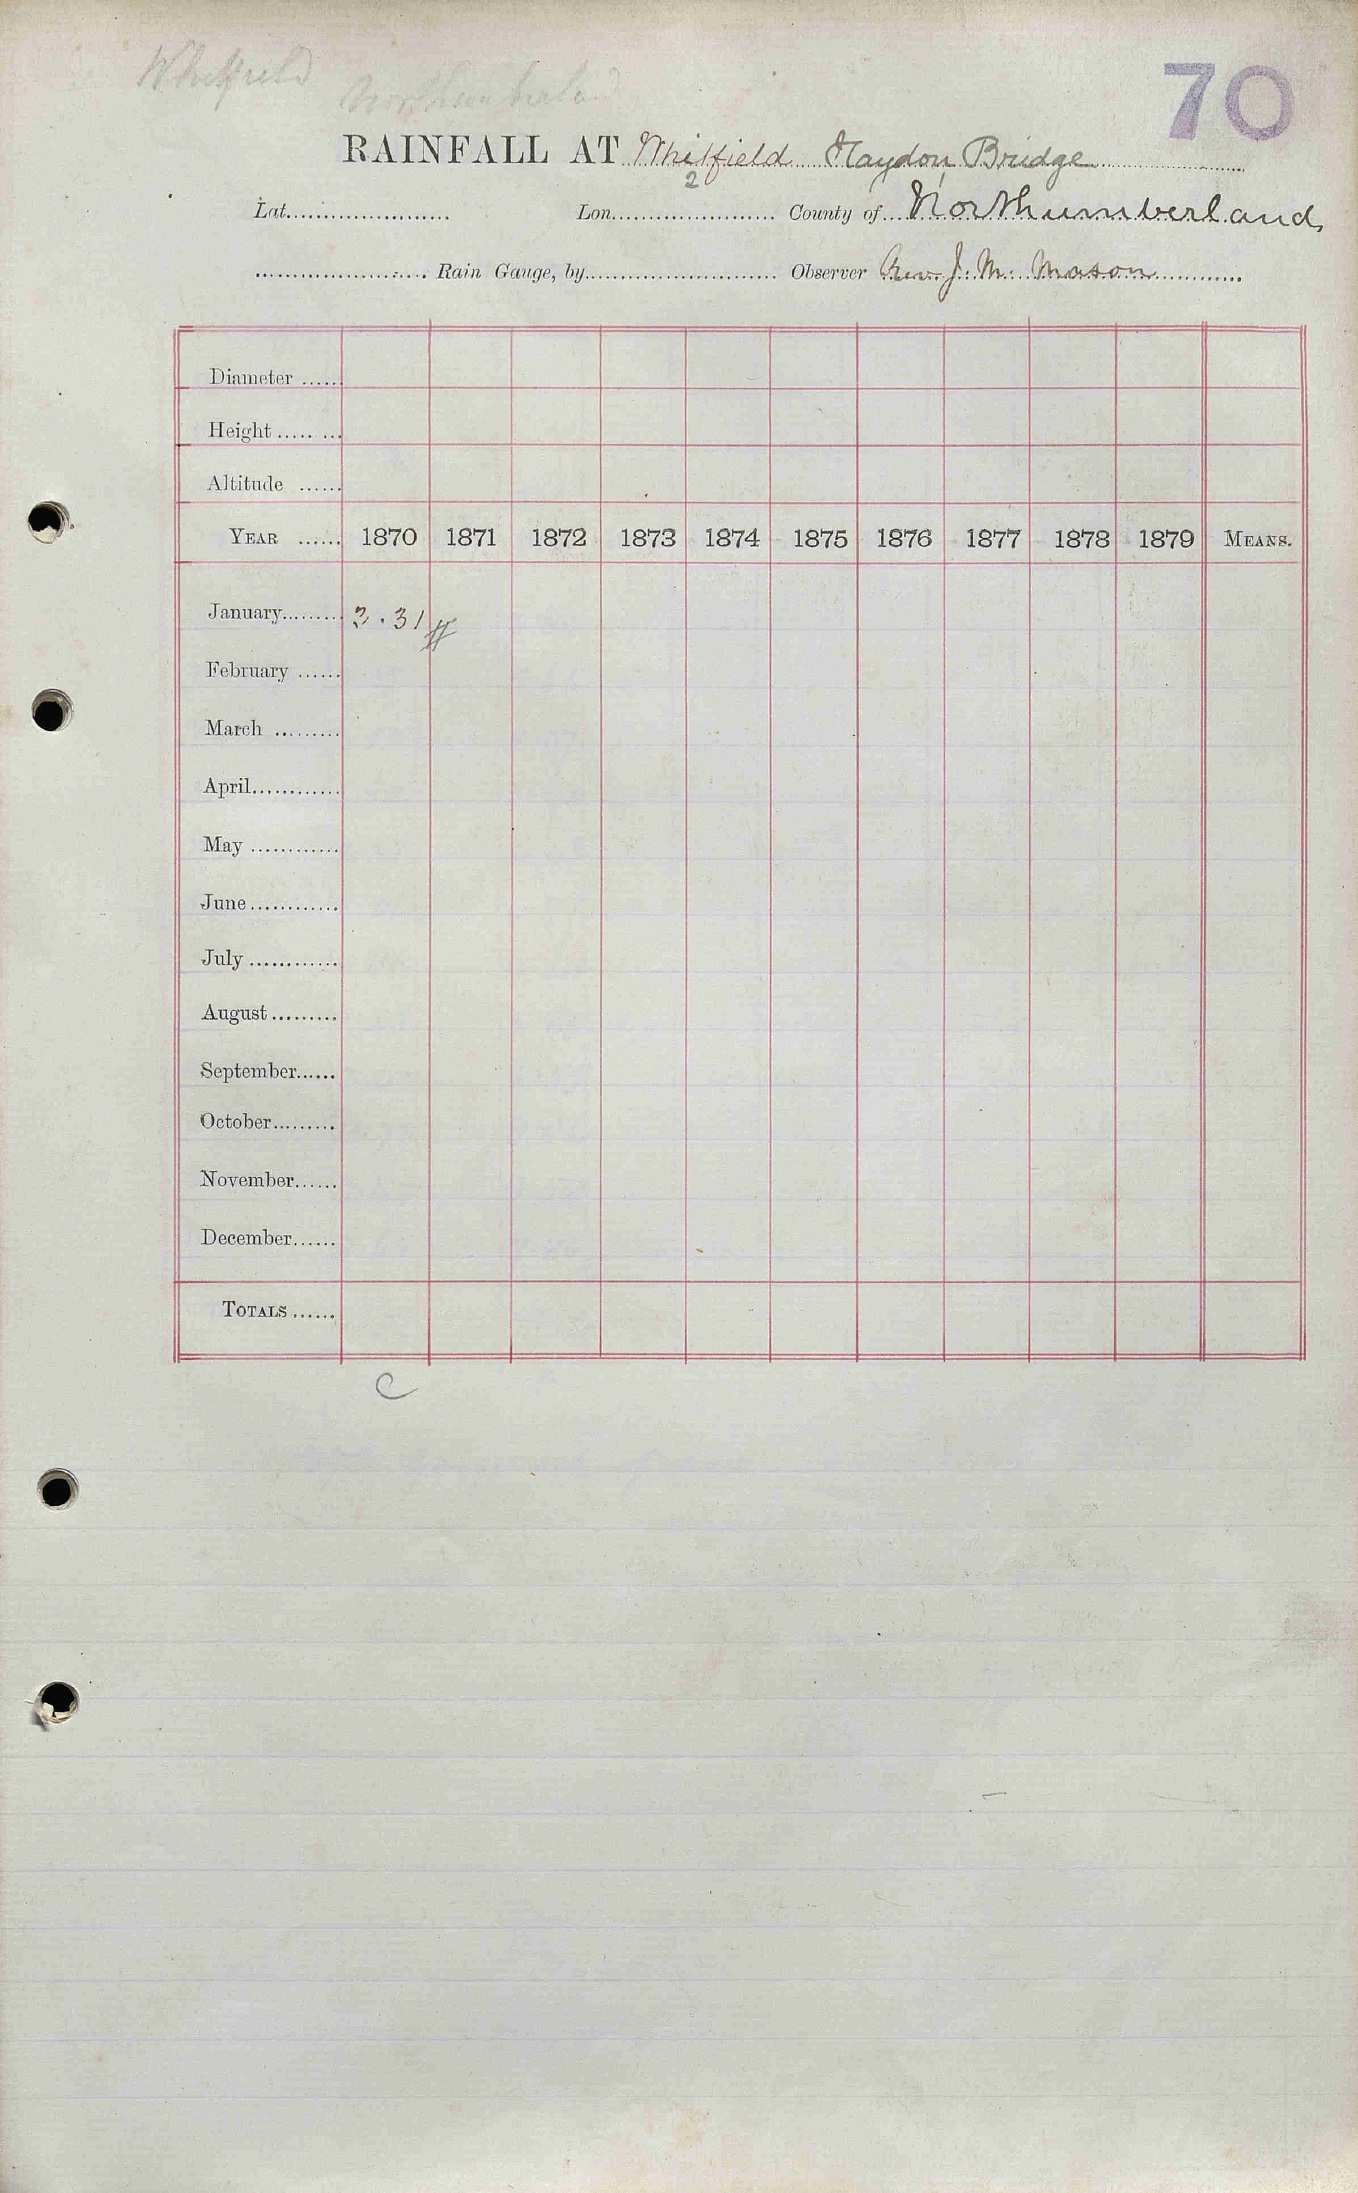 Whitfield
Northumberland
70
RAINFALL AT Whitfield Haydon Bridge
2
Lat. Lon. County of Northumberland
Rain Gauge, by Observer Rev. J. M. Mason
Diameter
Height
Altitude
YEAR 1870 1871 1872 1873 1874 1875 1876 1877 1878 1879 MEANS.
January 3.31 #
February
March
April
May
June
July
August
September
October
November
December
TOTALS
C